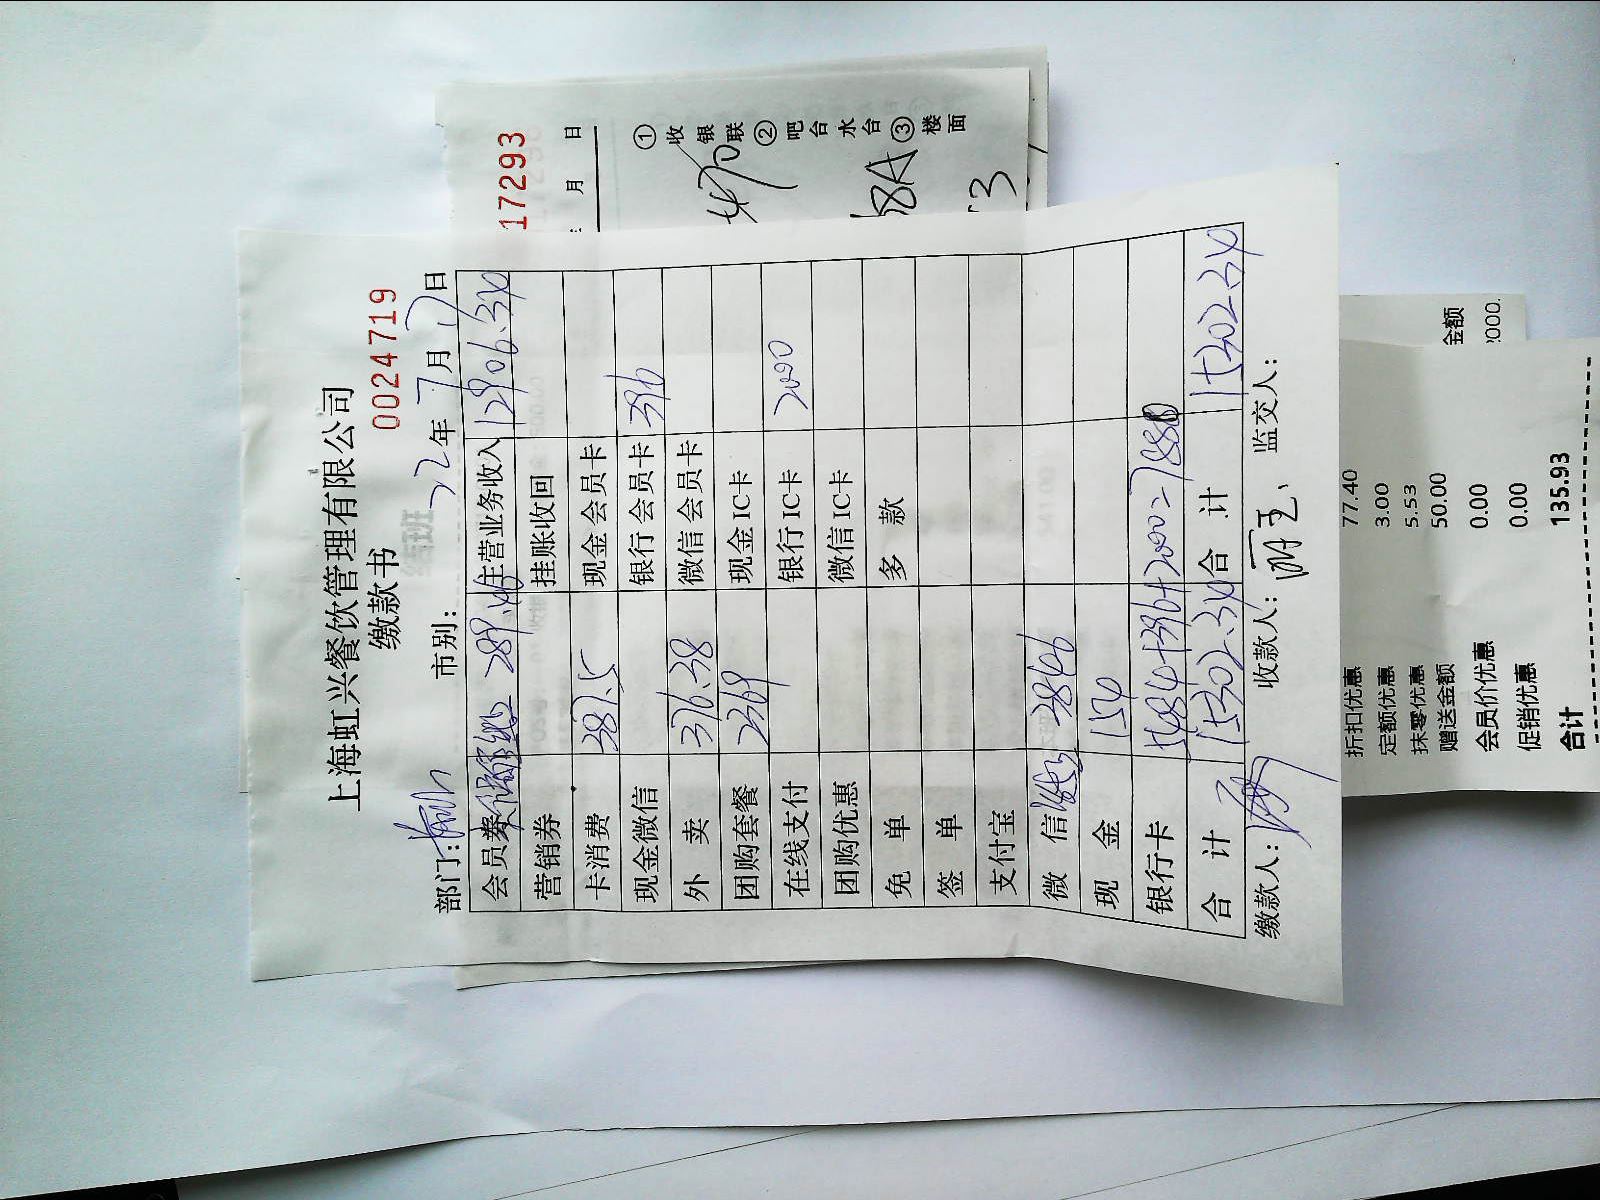 上海虹兴餐饮管理有限公司
缴款书
0024719
部门: 市别: 22年7月17日
会员券 289.46 主营业务收入 12906.34
营销券 挂账收回
卡消费 381.5 现金会员卡
现金微信 银行会员卡 396
外卖 376.38 微信会员卡
团购套餐 2369 现金IC卡
在线支付 银行IC卡 2000
团购优惠 微信IC卡
免单 多款
签单
支付宝
微信 3846
现金 154
银行卡 5484+396+2000=7880
合计 15302.34 合计 15302.34
缴款人: 收款人: 监交人:
17293
月 日
①收银联②吧台水台③楼面
68A
53
金额
折扣优惠 77.40
定额优惠 3.00
抹零优惠 5.53
赠送金额 50.00
会员价优惠 0.00
促销优惠 0.00
合计 135.93